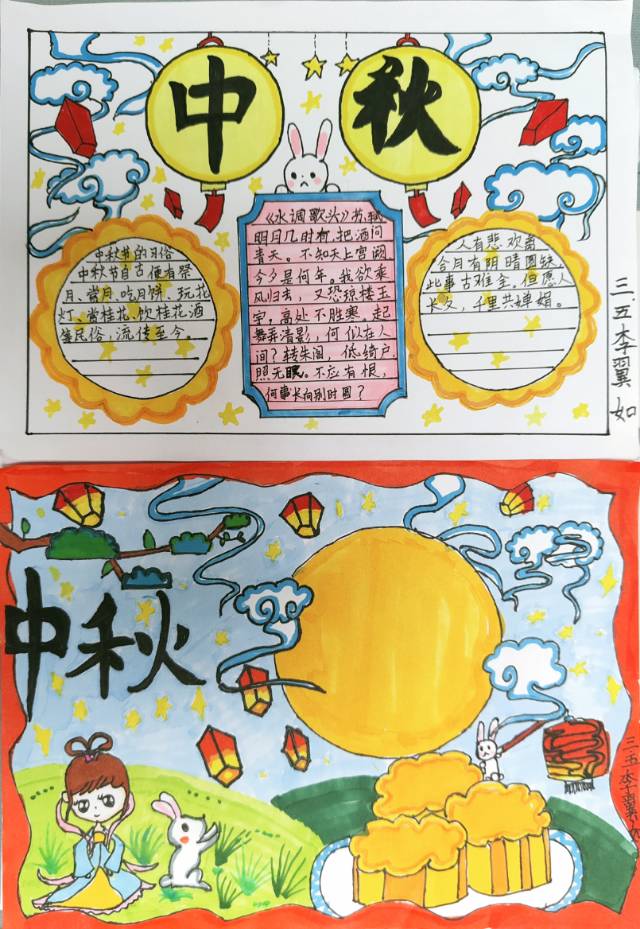 中 秋
中秋节的习俗
中秋节自古便有祭
月、赏月、吃月饼、玩花
灯、赏桂花、饮桂花酒
等民俗，流传至今。
《水调歌头》苏轼
明月几时有，把酒问
青天。不知天上宫阙
今夕是何年。我欲乘
风归去，又恐琼楼玉
宇，高处不胜寒，起
舞弄清影，何似在人
间？转朱阁，低绮户，
照无眠。不应有恨，
何事长向别时圆？
人有悲欢离
合月有阴晴圆缺
此事古难全。但愿人
长久，千里共婵娟。
三五李翼如
中秋
三五李翼